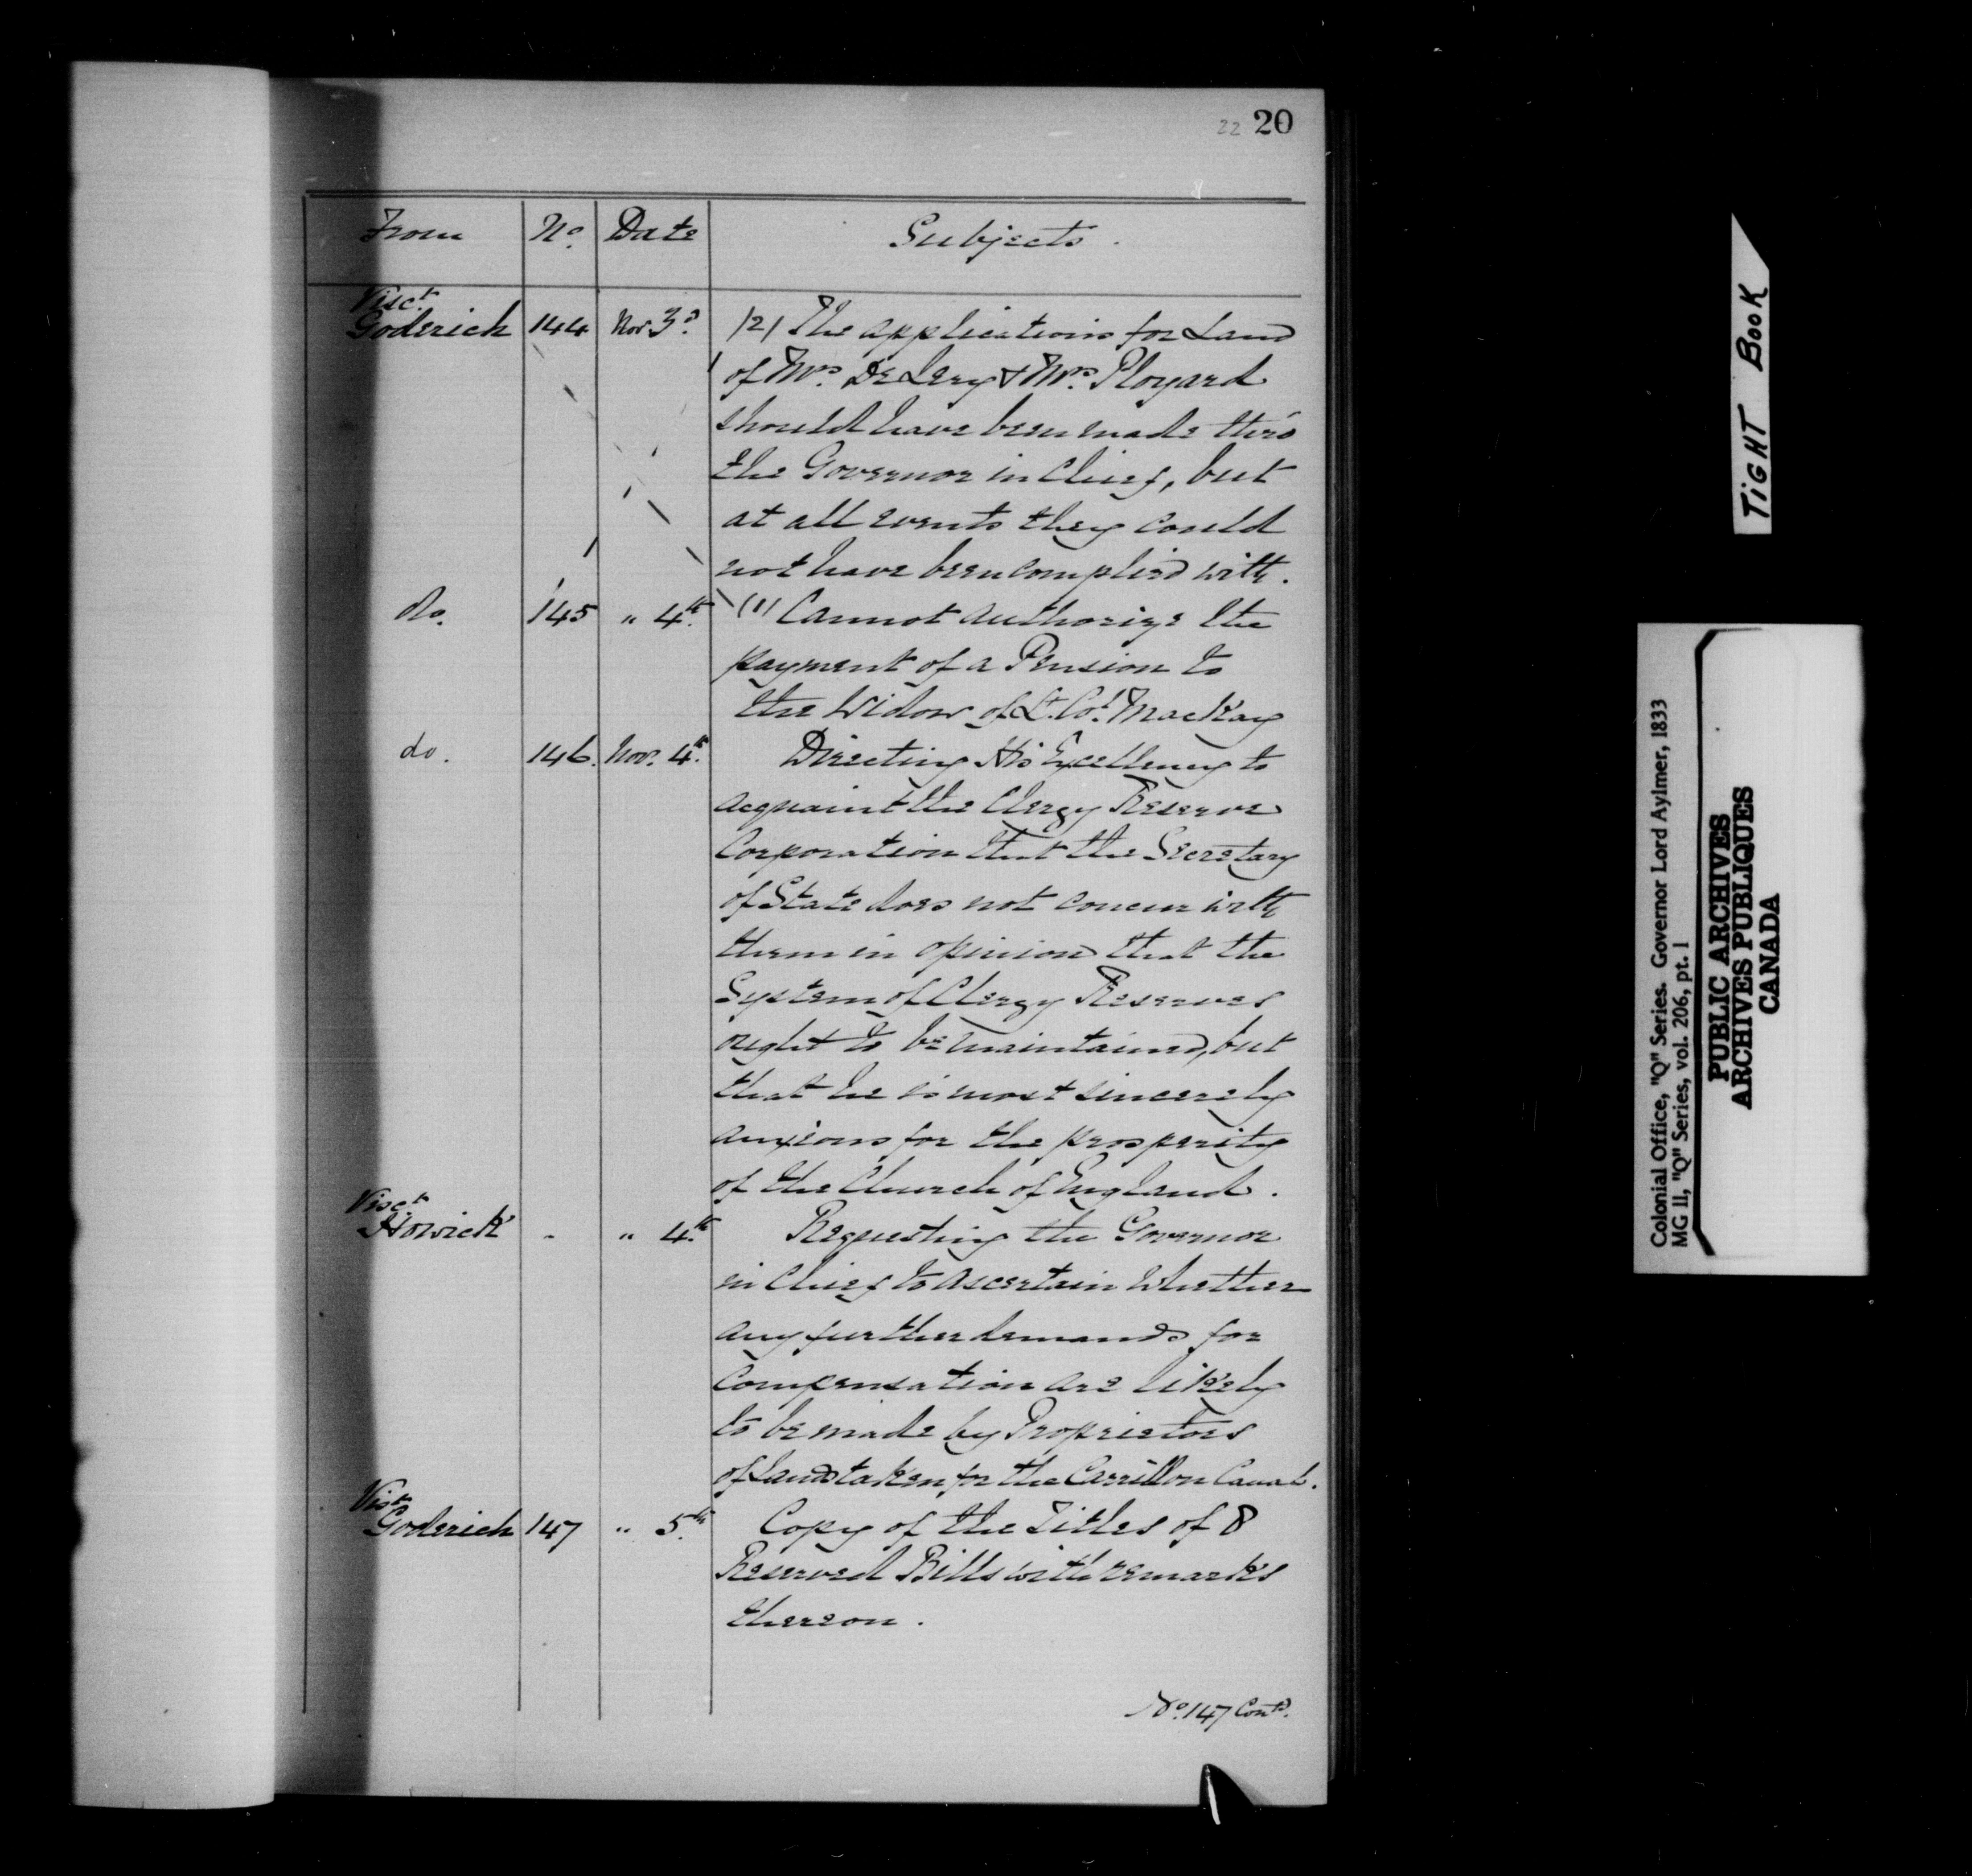 22 20
From No. Date Subjects.
Visct.
Goderich 144 Nov 3d. (2) The applications for Land
of Mrs. De Lery & Mrs. Ployard
should have been made thro'
the Governor in Chief, but
at all events they could
not have been complied with.
do. 145 " 4th. (1) Cannot authorize the
payment of a Pension to
the Widow of Lt. Col. MacKay
do. 146. Nov. 4th. Directing His Excellency to
acquaint the Clergy Reserve
Corporation that the Secretary
of State does not concur with
them in opinion that the
System of Clergy Reserves
ought to be maintained, but
that he is most sincerely
anxious for the prosperity
of the Church of England.
Visct.
Howick - " 4th. Requesting the Governor
in Chief to ascertain whether
any further demands for
Compensation are likely
to be made by Proprietors
of Land taken for the Carrillon Canal.
Visct
Goderich 147 " 5th. Copy of the Titles of 8
Reserved Bills with remarks
thereon.
No. 147 Contd.
TIGHT BOOK
Colonial Office, "Q" Series. Governor Lord Aylmer, 1833
MG 11, "Q" Series, vol. 206, pt. 1
PUBLIC ARCHIVES
ARCHIVES PUBLIQUES
CANADA